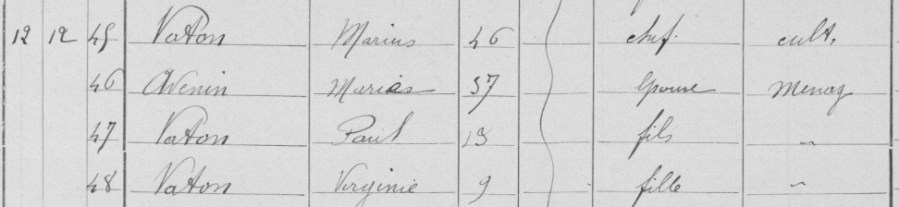 12 12 45 Vaton Marius 46 chef. cult.
46 Avenin Marias 37 épouse menag
47 Vaton Paul 13 fils "
48 Vaton Virginie 9 fille "